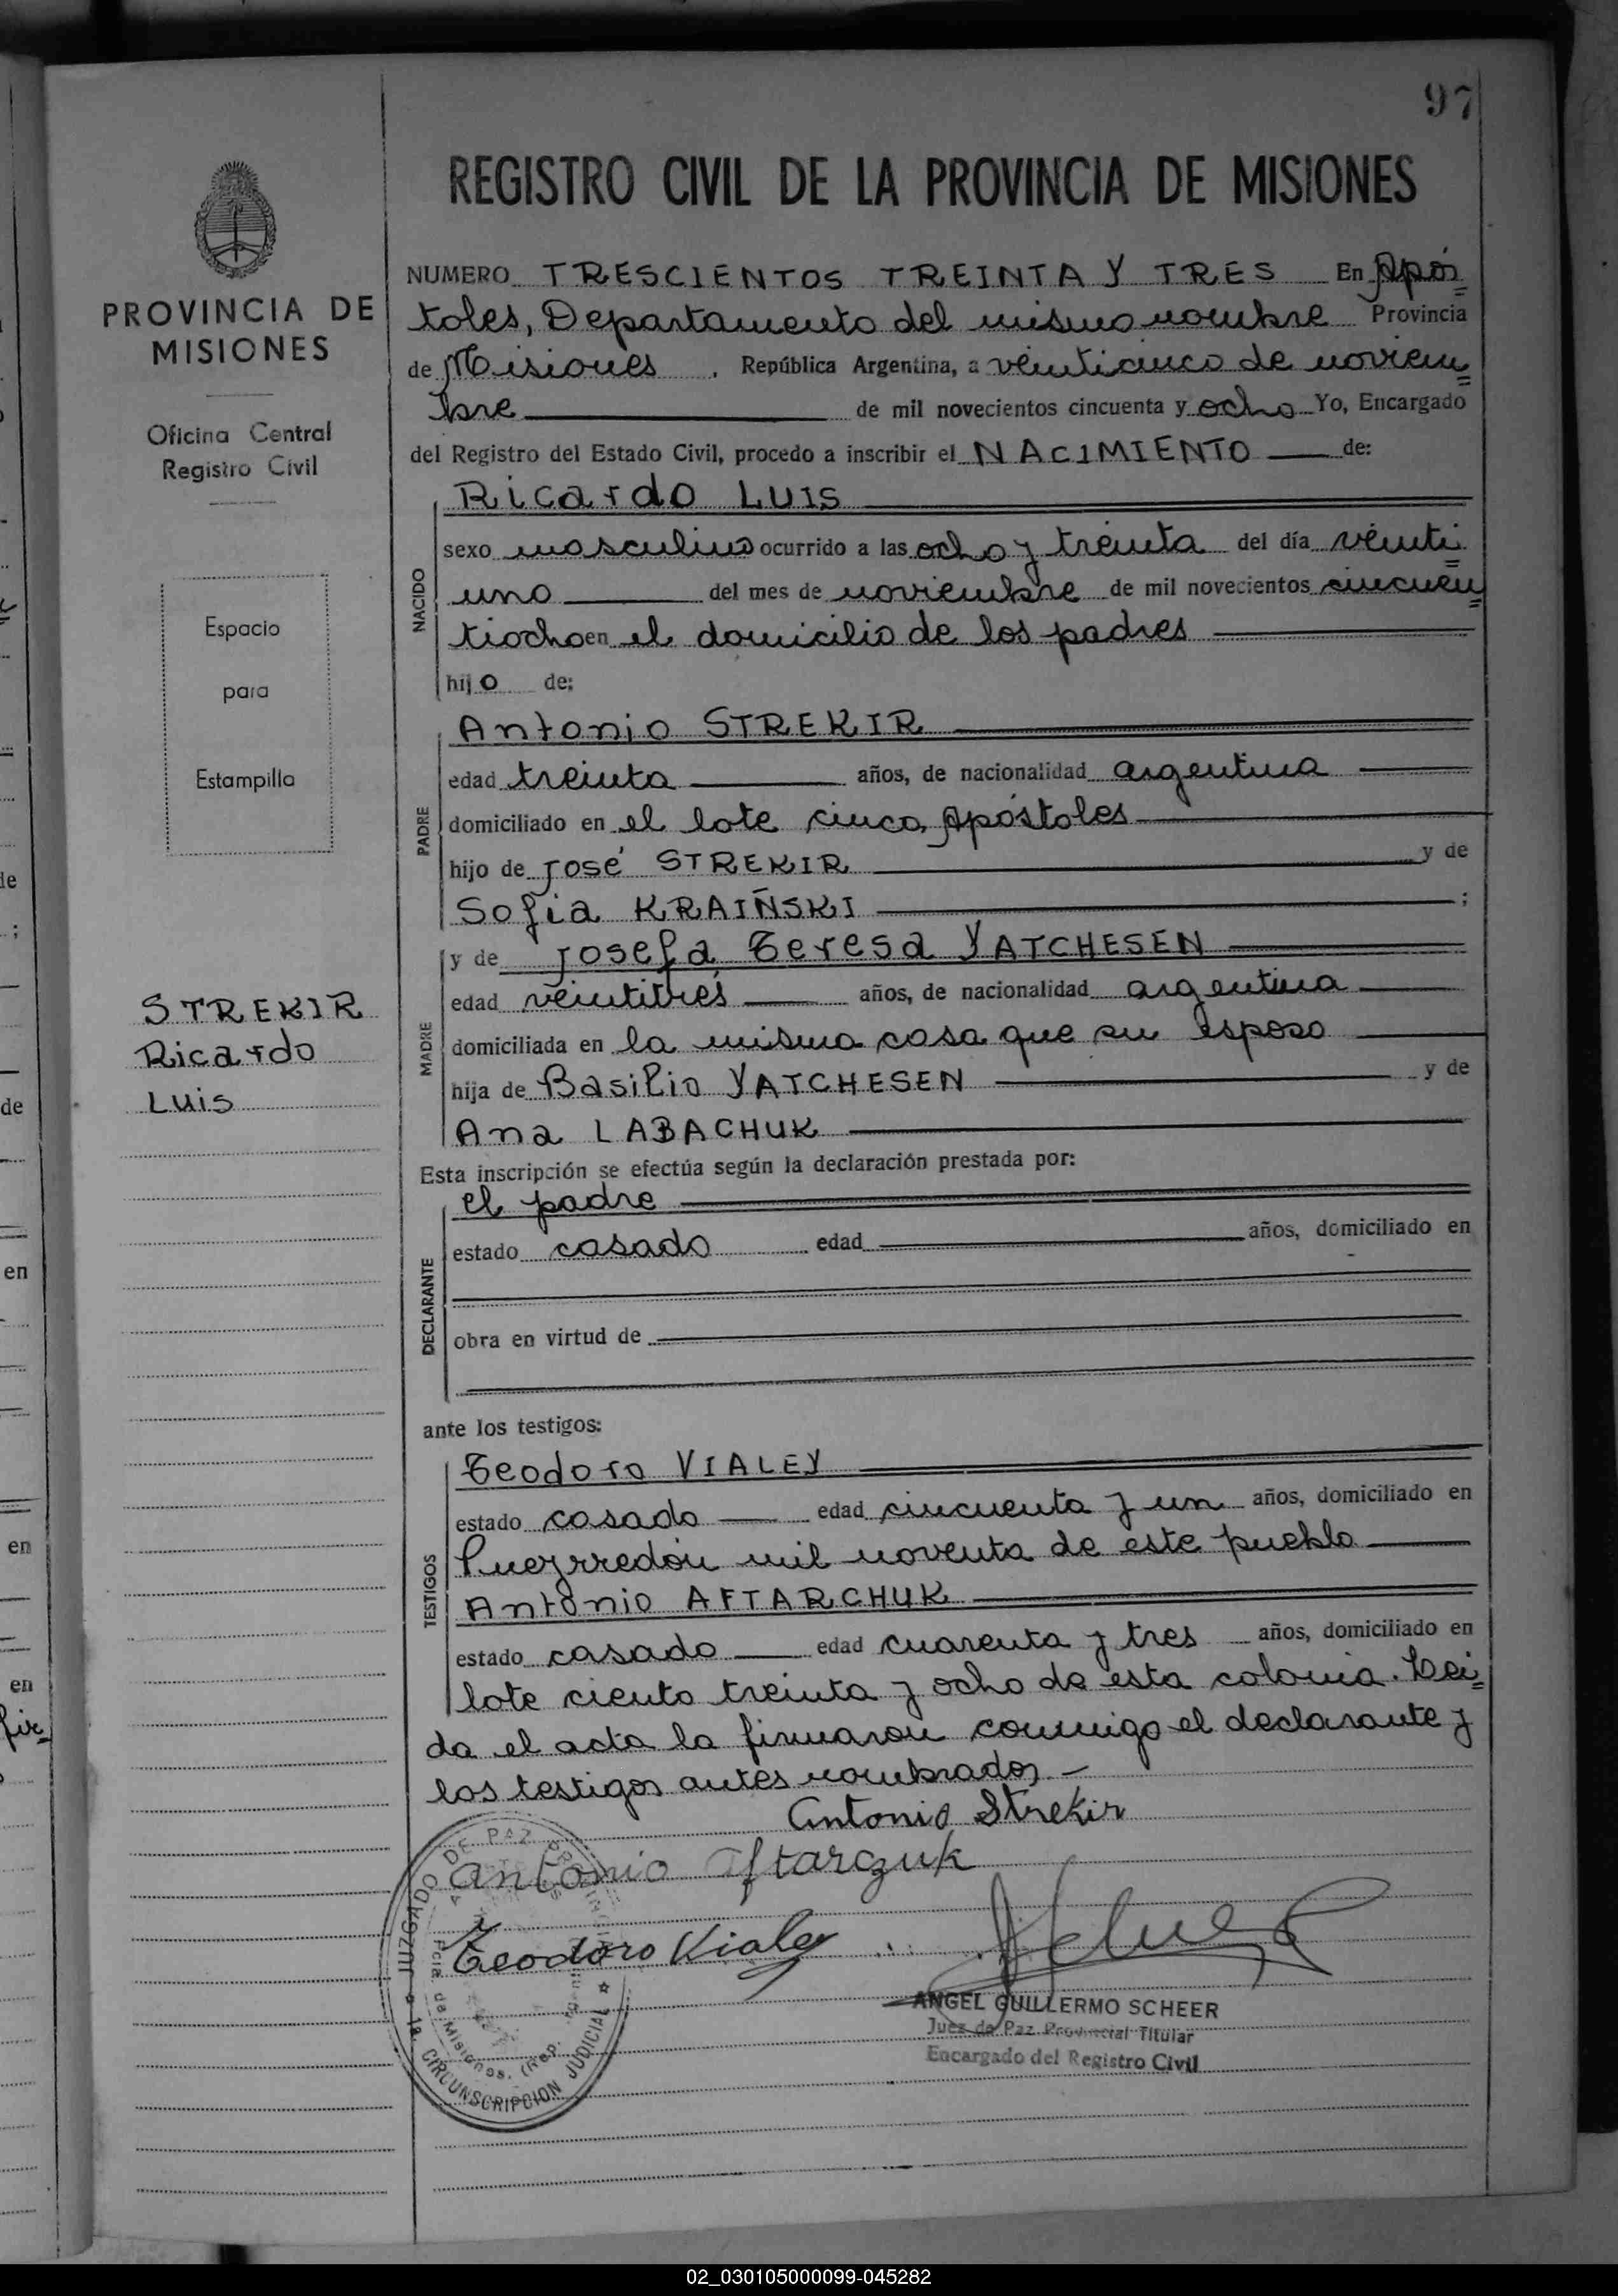 97
REGISTRO CIVIL DE LA PROVINCIA DE MISIONES
PROVINCIA DE
MISIONES
Oficina Central
Registro Civil
Espacio
para
Estampilla
STREKIR
Ricardo
Luis
NUMERO TRESCIENTOS TREINTA Y TRES En Após
toles, Departamento del mismo nombre Provincia
de Misiones . República Argentina, a veinticinco de noviem
bre de mil novecientos cincuenta y ocho Yo, Encargado
del Registro del Estado Civil, procedo a inscribir el NACIMIENTO de:
NACIDO
Ricardo LUIS
sexo masculino ocurrido a las ocho y treinta del día veinti
uno del mes de noviembre de mil novecientos cincuen
tiocho en el domicilio de los padres
hijo de:
PADRE
Antonio STREKIR
edad treinta años, de nacionalidad argentina
domiciliado en el lote cinco, Apóstoles
hijo de José STREKIR y de
Sofia KRAIÑSKI ;
MADRE
y de Josefa Teresa YATCHESEN
edad veintitrés años, de nacionalidad argentina
domiciliada en la misma casa que su esposo
hija de Basilio YATCHESEN y de
Ana LABACHUK
Esta inscripción se efectúa según la declaración prestada por:
DECLARANTE
el padre
estado casado edad años, domiciliado en
obra en virtud de
ante los testigos:
TESTIGOS
Teodoro VIALEY
estado casado edad cincuenta y un años, domiciliado en
Pueyrredón mil noventa de este pueblo
Antonio AFTARCHUK
estado casado edad cuarenta y tres años, domiciliado en
lote ciento treinta y ocho de esta colonia. Lei
da el acta la firmaron conmigo el declarante y
los testigos antes nombrados.-
Antonio Strekir
Antonio Aftarczuk
Teodoro Vialey
JUZGADO DE PAZ
1a. CIRCUNSCRIPCION JUDICIAL
Pcia de Misiones. (Rep.
ANGEL GUILLERMO SCHEER
Juez de Paz Provincial Titular
Encargado del Registro Civil
de
;
de
en
en
en
fir
02_030105000099-045282